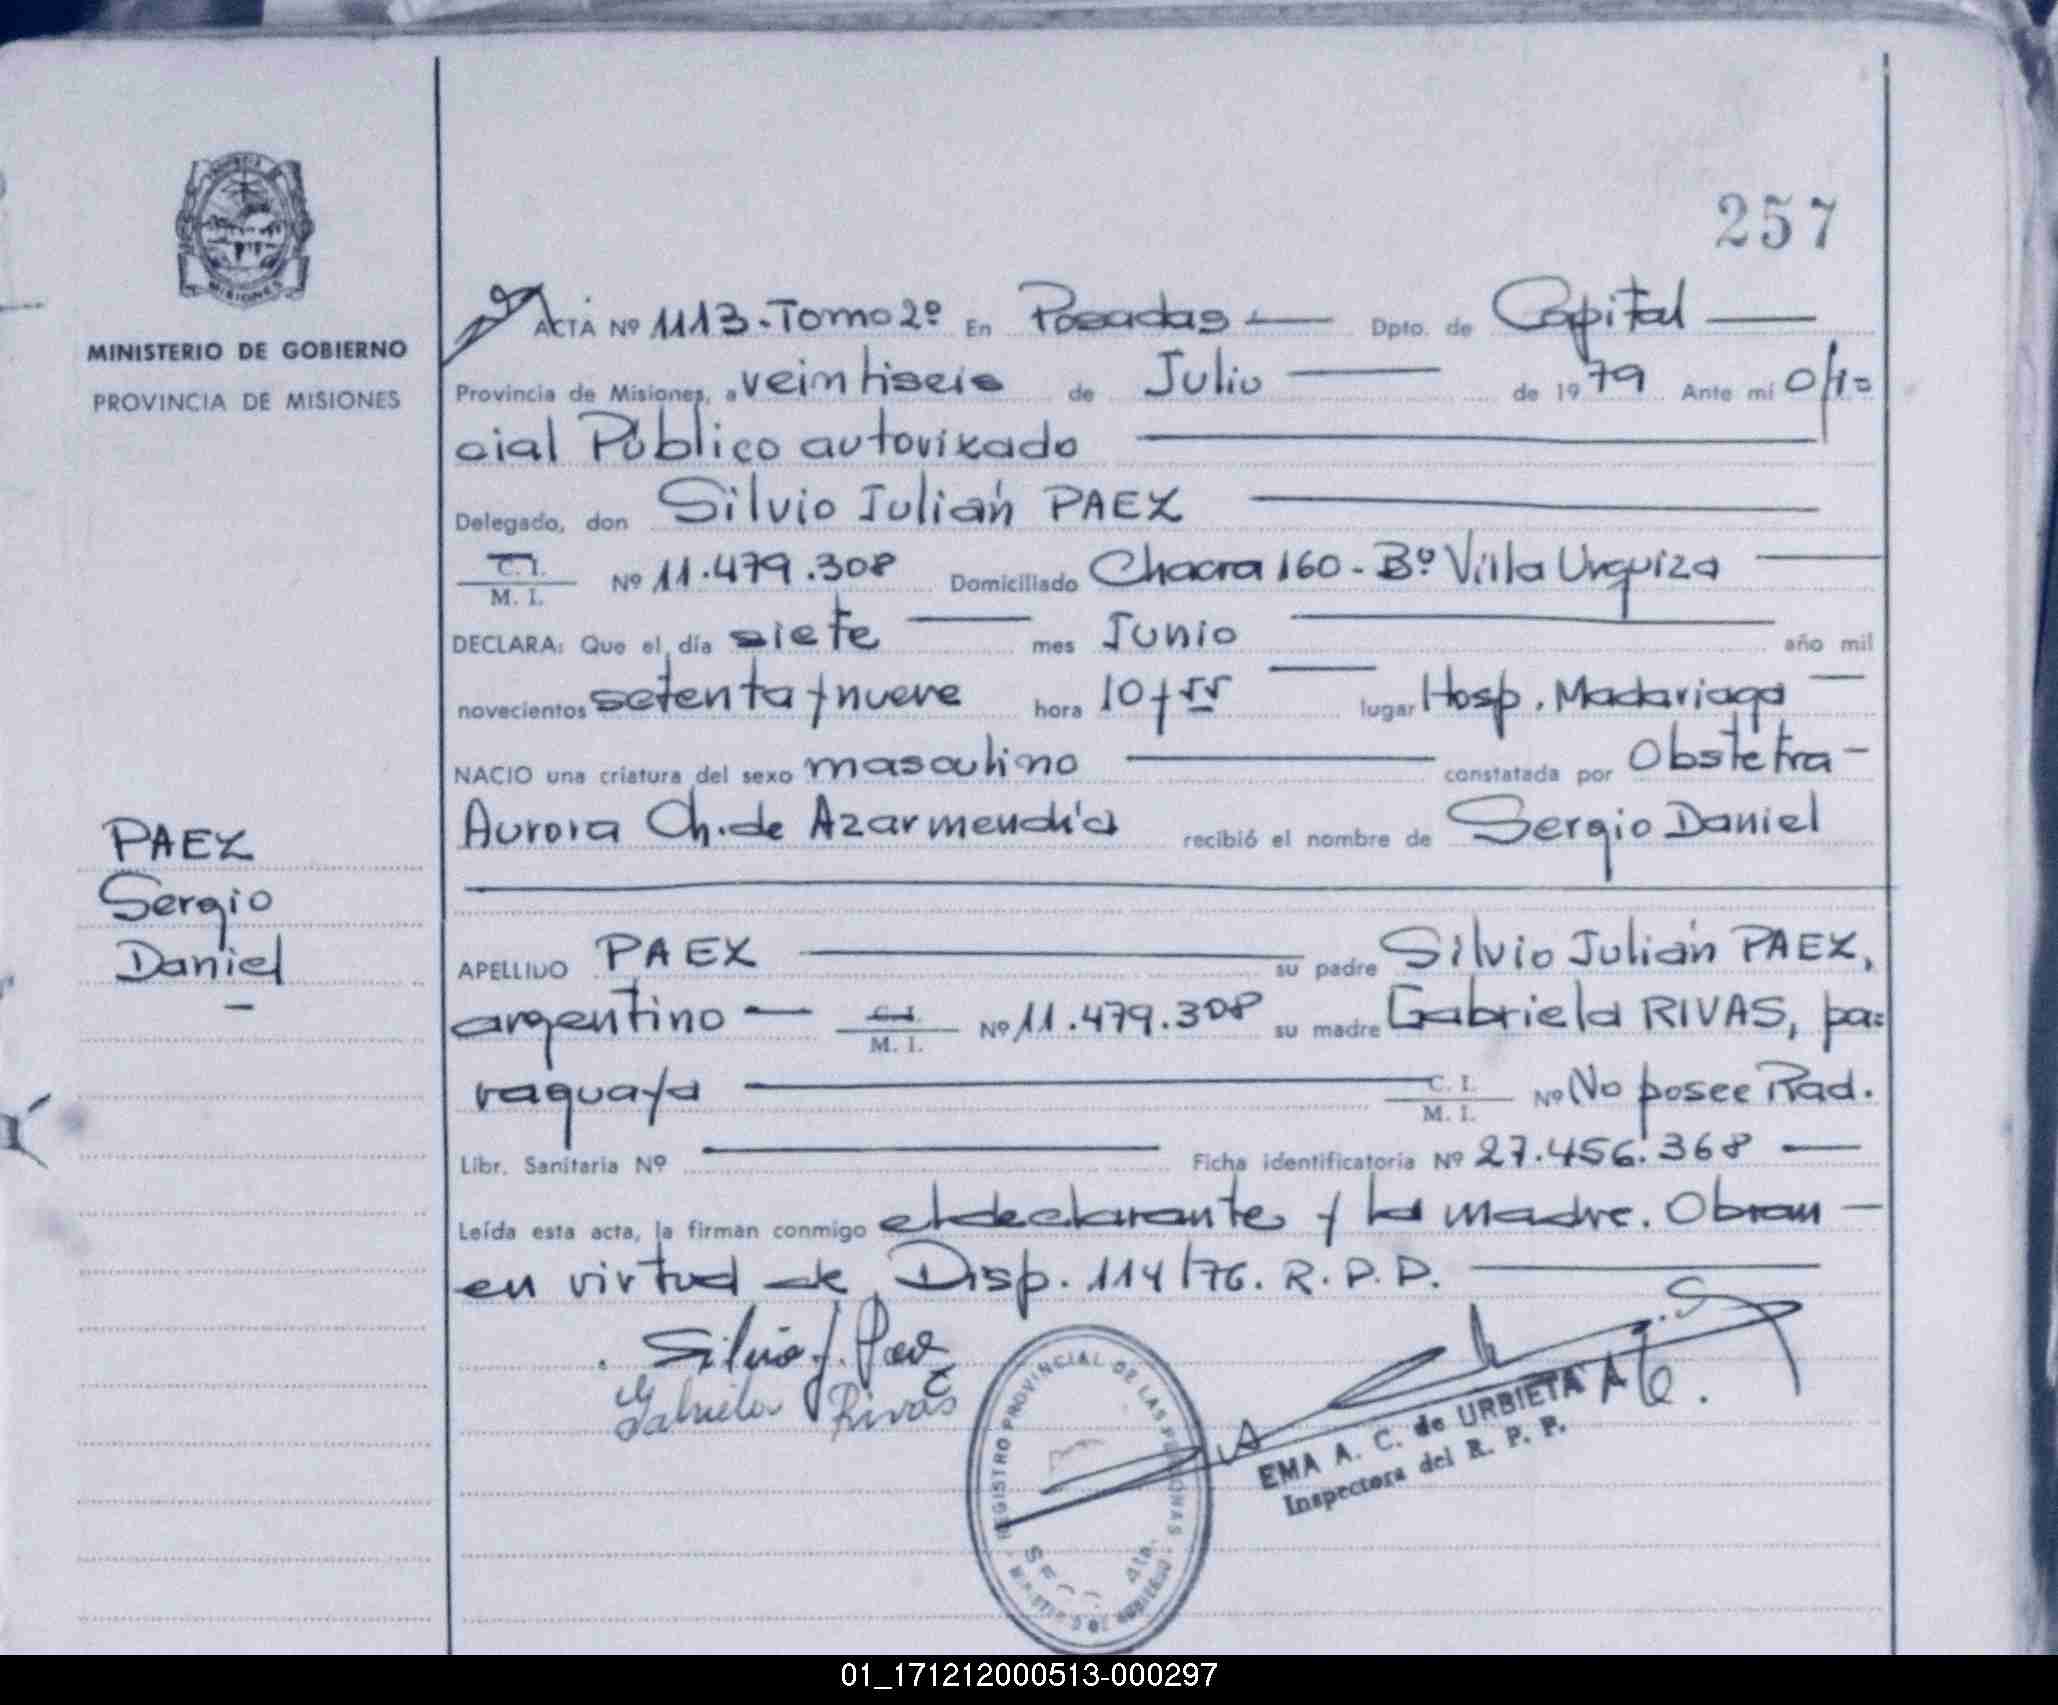 257
MINISTERIO DE GOBIERNO
PROVINCIA DE MISIONES
ACTA Nº 1113-Tomo 2º En Posadas Dpto. de Capital
Provincia de Misiones, a veintiseis de Julio de 1979 Ante mí Ofi=
cial Público autorizado
Delegado, don Silvio Julián PAEZ
C. I.
M. I. Nº 11.479.308 Domiciliado Chacra 160 - Bº Villa Urquiza
DECLARA: Que el día siete mes Junio año mil
novecientos setenta y nueve hora 10 y 55 lugar Hosp. Madariaga
NACIO una criatura del sexo masculino constatada por Obstetra -
Aurora Ch. de Azarmendia recibió el nombre de Sergio Daniel
PAEZ
Sergio
Daniel
APELLIDO PAEZ su padre Silvio Julián PAEZ,
argentino C. I.
M. I. Nº 11.479.308 su madre Gabriela RIVAS, pa=
raguaya C. I.
M. I. Nº No posee Rad.
Libr. Sanitaria Nº Ficha identificatoria Nº 27.456.368
Leída esta acta, la firman conmigo el declarante y la madre. Obran -
en virtud de Disp. 114/76. R.P.P.
Silvio J. Paez
Gabriela Rivas
REGISTRO PROVINCIAL DE LAS PERSONAS
EMA A. C. de URBIETA
Inspectora del R. P. P.
01_171212000513-000297